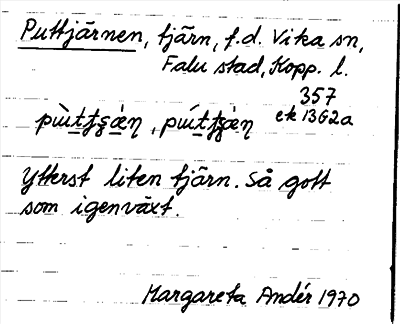 Puttjärnen, tjärn, f.d. Vika sn,
Falu stad, Kopp. l.
357
ek 13G2a
Ytterst liten tjärn. Så gott
som igenväxt.
Margareta Andér 1970